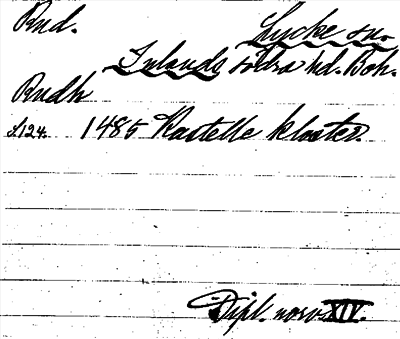 Rud.
Lycke sn.
Inlands södra hd. Boh.
Rudh
s124. 1485 Kastelle kloster.
Dipl. norv. XIV.